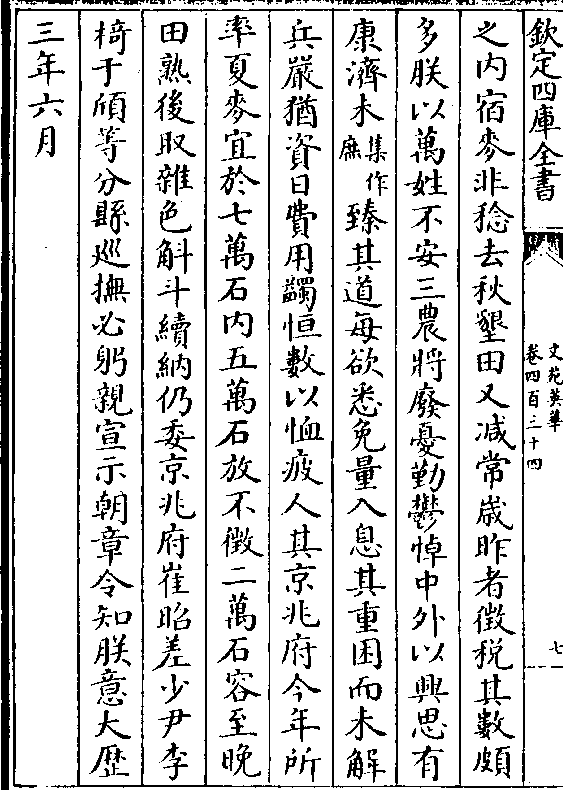 欽定四庫全書
文苑英華
卷四百三十四
七
之内宿麥非稔去秋墾田又減常歲昨者徴稅其數頗
多朕以萬姓不安三農將廢憂勤鬱悼中外以興思有
康濟未集作庶臻其道每欲悉免量入息其重困而未解
兵嚴猶資日費用蠲恒數以恤疲人其京兆府今年所
率夏麥宜於七萬石内五萬石放不徴二萬石容至晚
田熟後取雜色斛斗續納仍委京兆府崔昭差少尹李
椅于頎等分縣廵撫必躬親宣示朝章令知朕意大歴
三年六月